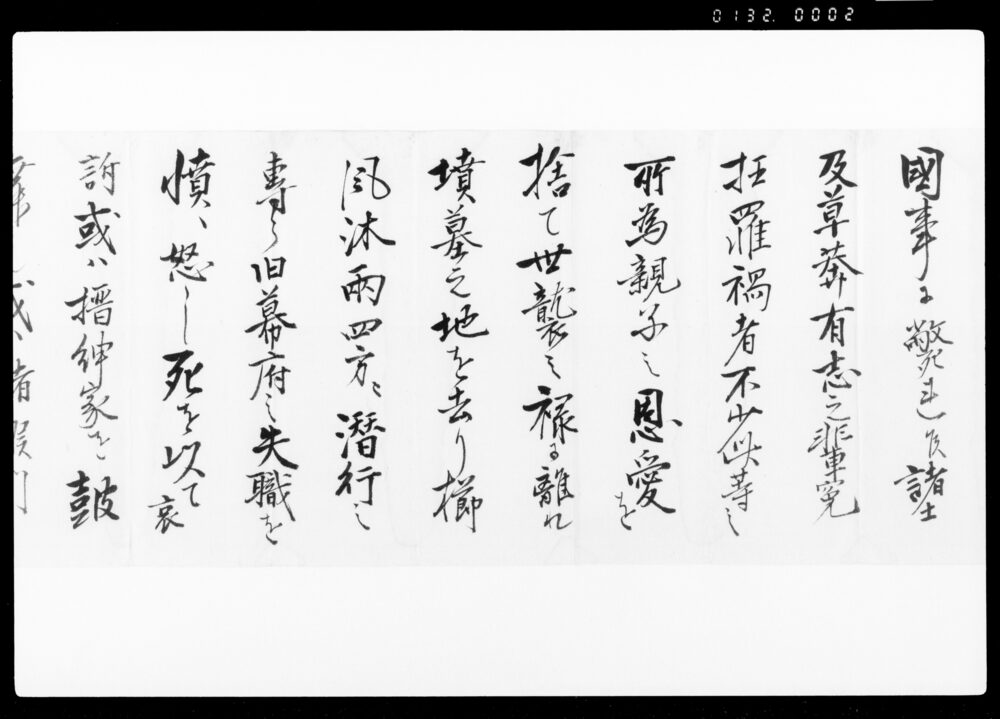 0132. 0002
國事ニ斃連候諸士
及草莽有志之輩寃
枉羅禍者不少此等之
所為親子之恩愛を
捨て世襲之禄ヲ離れ
墳墓之地を去り櫛
風沐雨四方ニ潜行之
専ら旧幕府之失職を
憤ヽ怒し死を以て哀
訴或ハ搢紳家を鼓